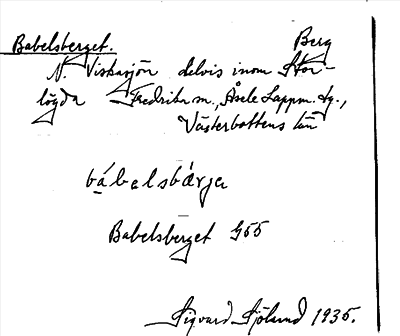 Babelsberget. Berg
N. Viskasjön delvis inom Stor-
lögda Fredrika sn., Åsele Lappm. tg.,
Västerbottens län
bábelsbärja
Babelsberget G55
Sigvard Sjölund 1935.